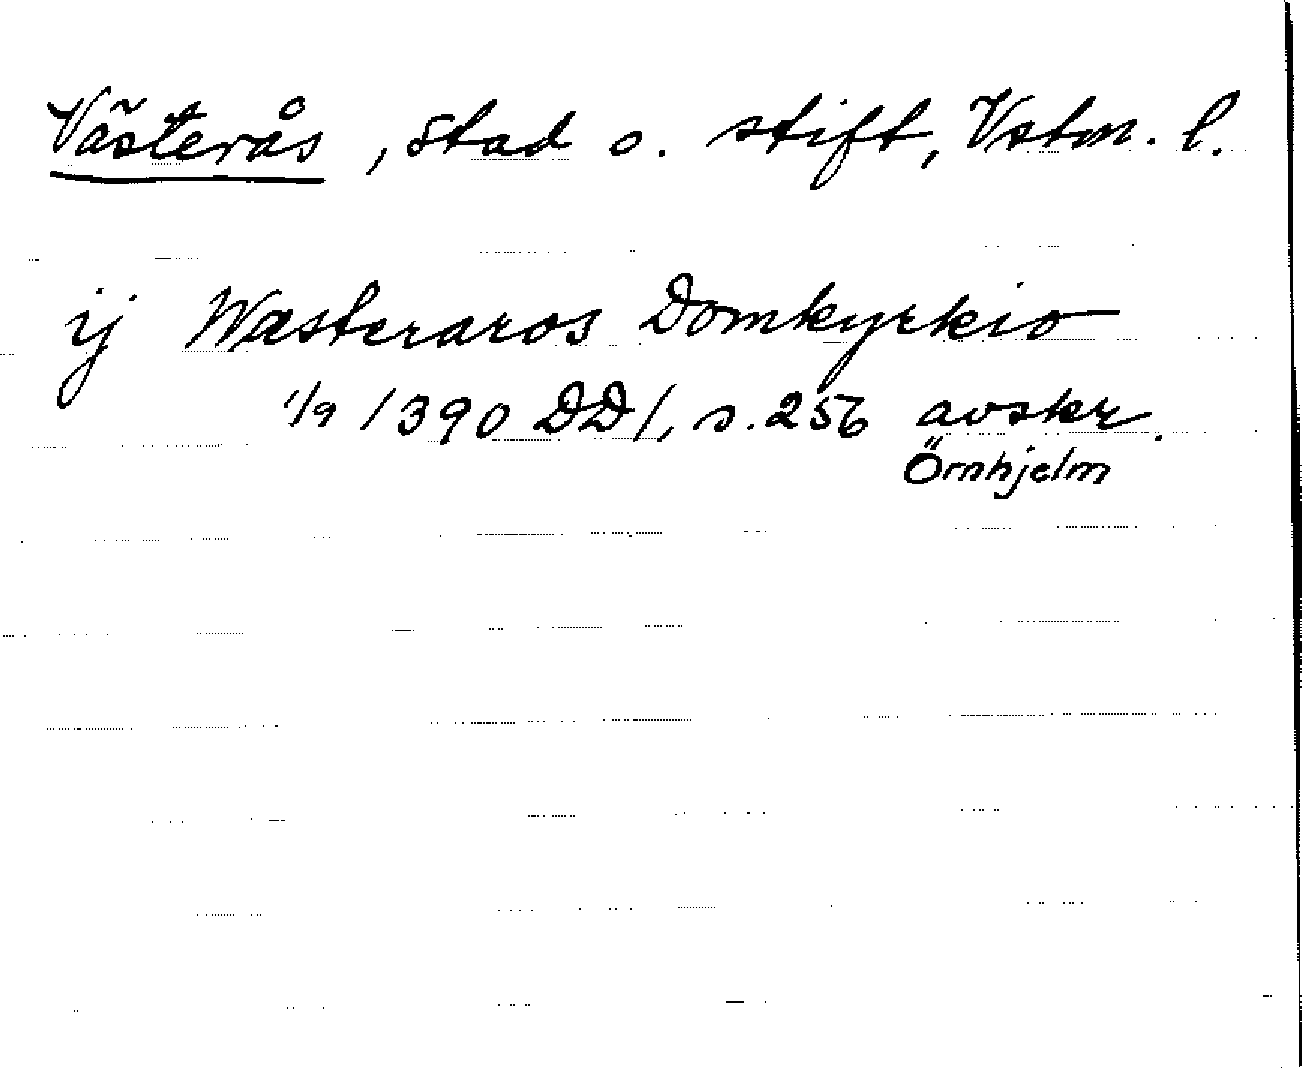 Västerås, stad o. stift, Vstm. l.
ij Wæsteraros Domkyrkio
1/9 1390 DD1, s. 256 avskr.
Örnhjelm